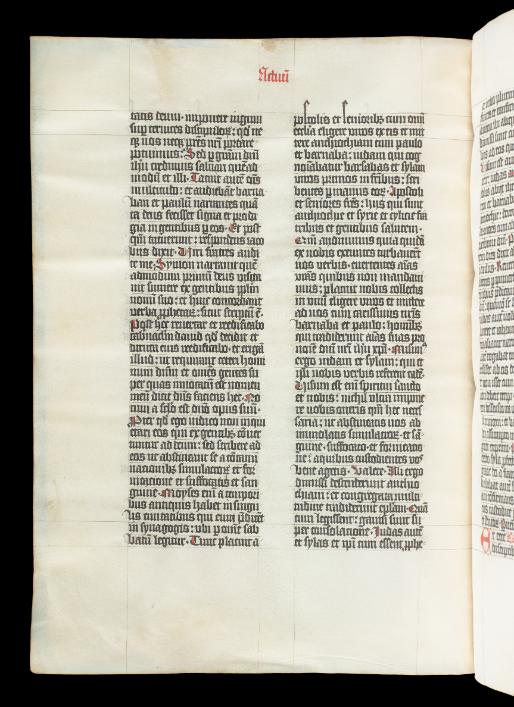 Actuū
tatis deum · imponere iugum
suꝑ ceruices discipuloꝝ : qđ ne
qꝫ nos neqꝫ ptr̄es nr̄i portare
potuimus : Sed ꝑ grām dn̄i
ih̄u credimus saluari quēad
modū et illi · Tacuit autē oīs
multitudo : et audiebāt barna
ban et paulū narrantes quā
ta deus fecisset signa et prodi
gia in gentibus ꝑ eos · Et post
qm̄ tacuerunt : respondens iaco
bus dixit · Uiri fratres audi
te me · Symon narrauit quē
admodum primū deus visita
uit sumere ex gentibus pp̄lm
nomī suo : et huic concordant
verba ꝓphetaꝝ : sicut scriptū ē ·
Post hec reuertar et reedificabo
tabnaclm̄ dauid qđ decidit : et
diruta eius reedificabo · et erigā
illud : ut requirant ceteri homi
num dn̄m et om̄es gentes su
per quas inuocatū est nomen
meū dicit dn̄s faciens hec · No
tum a sclo est dn̄o opus suū ·
Propter qđ ego iudico non inqui
etari eos qui ex gentibꝫ cōuer
tuntur ad deum : sed scribere ad
eos ut abstineant se a cōtami
nationibꝫ simulacroꝝ et for
nicatione et suffocatis et san
guine · Moyses eni a tempori
bus antiquis habet in singu
lis ciuitatibus qui eum p̄dicēt
in synagogis : ubi ꝑ omē sab
batū legitur · Tunc placuit a
postolis et senioribꝫ cum omī
ecclīa eligere viros ex eis et mit
tere anthiochiam cum paulo
et barnaba : iudam qui cog
noīabatur barsabas et sylam
viros primos in frībus : scri
bentes ꝑ manus eoꝝ · Apostoli
et seniores frēs : hijs qui sunt
anthiochie et syrie et cylicie fra
tribus ex gentibus salutem ·
Qm̄ audiuimus quia quidā
ex nobis exeuntes turbauerūt
uos verbis · euertentes aīas
vr̄as quibus non mandaui
mus : placuit nobis collectis
in unū eligere viros et mittere
ad vos cum carissimis nr̄is
barnaba et paulo : hominibꝫ
qui tradiderunt aīas suas pro
noīe dn̄i nr̄i ih̄u xp̄i · Misimꝰ
ergo iudam et sylam : qui et
ipsi uobis verbis referent eadē ·
Uisum est eni spiritui sancto
et nobis : nichil ultra impone
re uobis oneris qm̄ hec neces
saria : ut abstineatis uos ab
immolatis simulacroꝝ et sā
guine · suffocato · et fornicatio
ne : a quibus custodientes vos
bene agetis · Ualete · Illi ergo
dimissi descenderunt anthio
chiam : et congregata multi
tudine tradiderunt epl̄am · Quā
cum legissent : gauisi sunt su
per consolatione · Iudas autē
et sylas et ipi cum essent ꝓphe